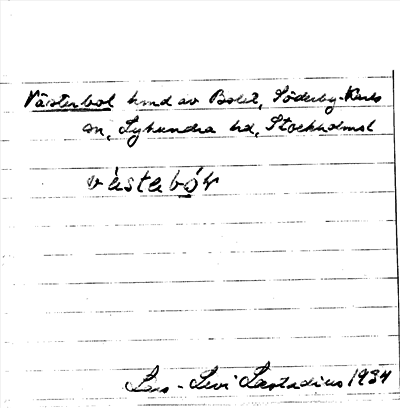 Västerbol hmd av Bolet, Söderby-Karls
sn, Lyhundra hd, Stockholmsl
vàstabó̱r
Lars-Levi Læstadius 1934